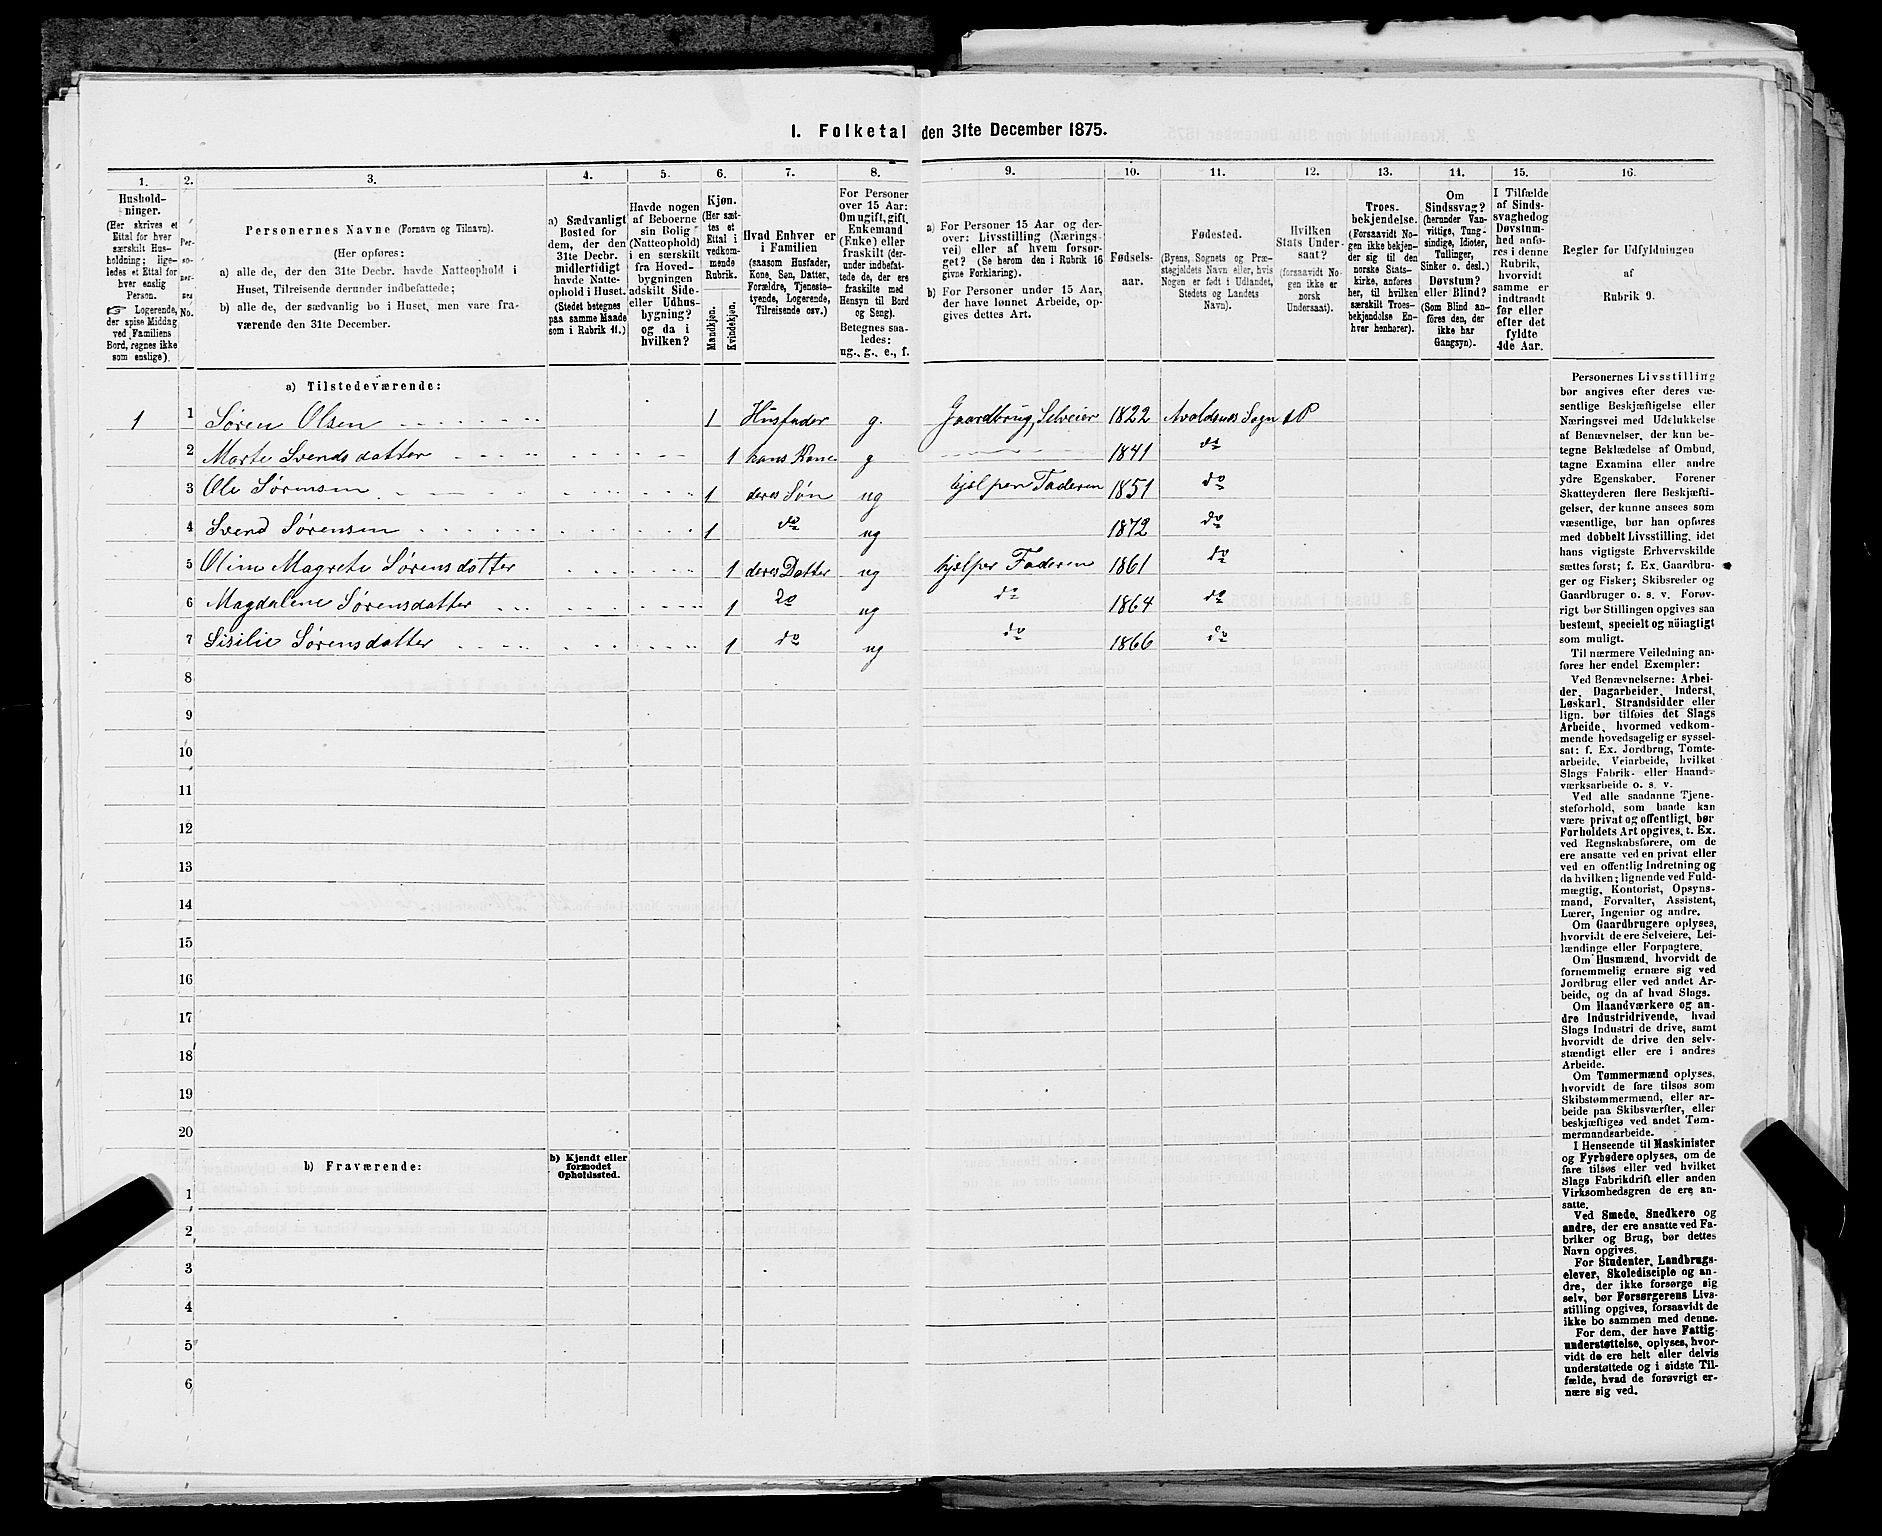 I. Folketal den 31te December 1875.
1. 2. 3. 4. 5. 6. 7. 8. 9. 10. 11. 12. 13. 14. 15. 16.
Hushold-
ninger.
(Her skrives et
Ettal for hver
særskilt Hus-
holdning; lige-
ledes et Ettal for
hver enslig
Person.
☞ Logerende,
der spise Middag
ved Familiens
Bord, regnes ikke
som enslige).
Per-
so-
ner-
nes
No.
Personernes Navne (Fornavn og Tilnavn).
(Her opføres:
a) alle de, der den 31te Decbr. havde Natteophold i
Huset, Tilreisende derunder indbefattede;
b) alle de, der sædvanlig bo i Huset, men vare fra-
værende den 31te December.
a) Sædvanligt
Bosted for
dem, der den
31te Decbr.
midlertidigt
havde Natte-
ophold i Huset.
(Stedet betegnes
paa samme Maade
som i Rubrik 11.)
Havde nogen
af Beboerne
sin Bolig
(Natteophold)
i en særskilt
fra Hoved-
bygningen
adskilt Side-
eller Udhus-
bygning?
og da i
hvilken?
Kjøn.
(Her sæt-
tes et
Ettal i
vedkom-
mende
Rubrik.
Mandkjøn.
Kvindekjøn.
Hvad Enhver er
i Familien
(saasom Husfader,
Kone, Søn, Datter,
Forældre, Tjeneste-
tyende, Logerende,
Tilreisende osv.)
For Personer
over 15 Aar:
Om ugift, gift,
Enkemand
(Enke) eller
fraskilt (der-
under indbefat-
tede de, der ere
fraskilte med
Hensyn til Bord
og Seng).
Betegnes saa-
ledes:
ug., g., e., f.
a) For Personer 15 Aar og der-
over: Livsstilling (Nærings-
vei) eller af hvem forsør-
get? (Se herom den i Rubrik 16
givne Forklaring).
b) For Personer under 15 Aar,
der have lønnet Arbeide, op-
gives dettes Art.
Fødsels-
aar.
Fødested.
(Byens, Sognets og Præ-
stegjeldets Navn eller, hvis
Nogen er født i Udlandet,
Stedets og Landets
Navn).
Hvilken
Stats Under-
saat?
(forsaavidt No-
gen ikke er
norsk
Undersaat).
Troes-
bekjendelse.
(Forsaavidt No-
gen ikke bekjen-
der sig til den
norske Stats-
kirke, anføres
her, til hvilken
særskilt Troes-
bekjendelse En-
hver henhører).
Om
Sindssvag?
(herunder Van-
vittige, Tung-
sindige, Idioter,
Tullinger,
Sinker o. desl.)
Døvstum?
eller Blind?
(Som Blind an-
føres den, der
ikke har
Gangsyn).
I Tilfælde
af Sinds-
svaghed og
Døvstum-
hed anfø-
res i denne
Rubrik,
hvorvidt
samme er
indtraadt
før eller
efter det
fyldte
4de Aar.
Regler for Udfyldningen
af
Rubrik 9.
a) Tilstedeværende:
1 1 Søren Olsen 1 Husfader g. Gaardbrug, Selveier 1822 Avoldsnes Sogn & P
2 Marte Svendsdatter 1 hans Kone g 1841 do
3 Ole Sørensen 1 deres Søn ug hjelper Faderen 1851 do
4 Svend Sørensen 1 do ug 1872 do
5 Oline Magrete Sørensdatter 1 deres Datter ug hjelper Faderen 1861 do
6 Magdalene Sørensdatter 1 do ug do 1864 do
7 Sisilie Sørensdatter 1 do ug do 1866 do
8
9
10
11
12
13
14
15
16
17
18
19
20
b) Fraværende:
b) Kjendt eller
formodet
Opholdssted.
1
2
3
4
5
6
Personernes Livsstilling
bør angives efter deres væ-
sentlige Beskjæftigelse eller
Næringsvei med Udelukkelse
af Benævnelser, der kun be-
tegne Beklædelse af Ombud,
tagne Examina eller andre
ydre Egenskaber. Forener
Skatteyderen flere Beskjæfti-
gelser, der kunne ansees som
væsentlige, bør han opføres
med dobbelt Livsstilling, idet
hans vigtigste Erhvervskilde
sættes først; f. Ex. Gaardbru-
ger og Fisker; Skibsreder og
Gaardbruger o. s. v. Forøv-
rigt bør Stillingen opgives saa
bestemt, specielt og nöiagtigt
som muligt.
Til nærmere Veiledning an-
føres her endel Exempler:
Ved Benævnelserne: Arbei-
der, Dagarbeider, Inderst,
Løskarl, Strandsidder eller
lign. bør tilføies det Slags
Arbeide, hvormed vedkom-
mende hovedsagelig er syssel-
sat: f. Ex. Jordbrug, Tomte-
arbeide, Veiarbeide, hvilket
Slags Fabrik- eller Haand-
værksarbeide o. s. v.
Ved alle saadanne Tjene-
steforhold, som baade kan
være privat og offentligt, bør
Forholdets Art opgives, t. Ex.
ved Regnskabsførere, om de
ere ansatte ved en privat eller
ved en offentlig Indretning og
da hvilken; lignende ved Fuld-
mægtig, Kontorist, Opsyns-
mand, Forvalter, Assistent,
Lærer, Ingeniør og andre.
Om Gaardbrugere oplyses,
hvorvidt de ere Selveiere, Lei-
lændinge eller Forpagtere.
Om Husmænd, hvorvidt de
fornemmelig ernære sig ved
Jordbrug eller ved andet Ar-
beide, og da af hvad Slags.
Om Haandværkere og an-
dre Industridrivende, hvad
Slags Industri de drive, samt
hvorvidt de drive den selv-
stændigt eller ere i andres
Arbeide.
Om Tømmermænd oplyses,
hvorvidt de fare tilsøs som
Skibstømmermænd, eller ar-
beide paa Skibsværfter, eller
beskjæftiges ved andet Tøm-
mermandsarbeide.
I Henseende til Maskinister
og Fyrbødere oplyses, om de
fare tilsøs eller ved hvilket
Slags Fabrikdrift eller anden
Virksomhedsgren de ere an-
satte.
Ved Smede, Snedkere og
andre, der ere ansatte ved Fa-
briker og Brug, bør dettes
Navn opgives.
For Studenter, Landbrugs-
elever, Skoledisciple og an-
dre, der ikke forsørge sig
selv, bør Forsørgerens Livs-
stilling opgives, forsaavidt de
ikke bo sammen med denne.
For dem, der have Fattig-
understøttelse, oplyses, hvor-
vidt de ere helt eller delvis
understøttede og i sidste Til-
fælde, hvad de forøvrigt er-
nære sig ved.